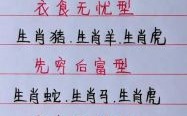 衣食无忧型
生肖猪.生肖羊.生肖虎
先穷后富型
生肖蛇.生肖马.生肖虎